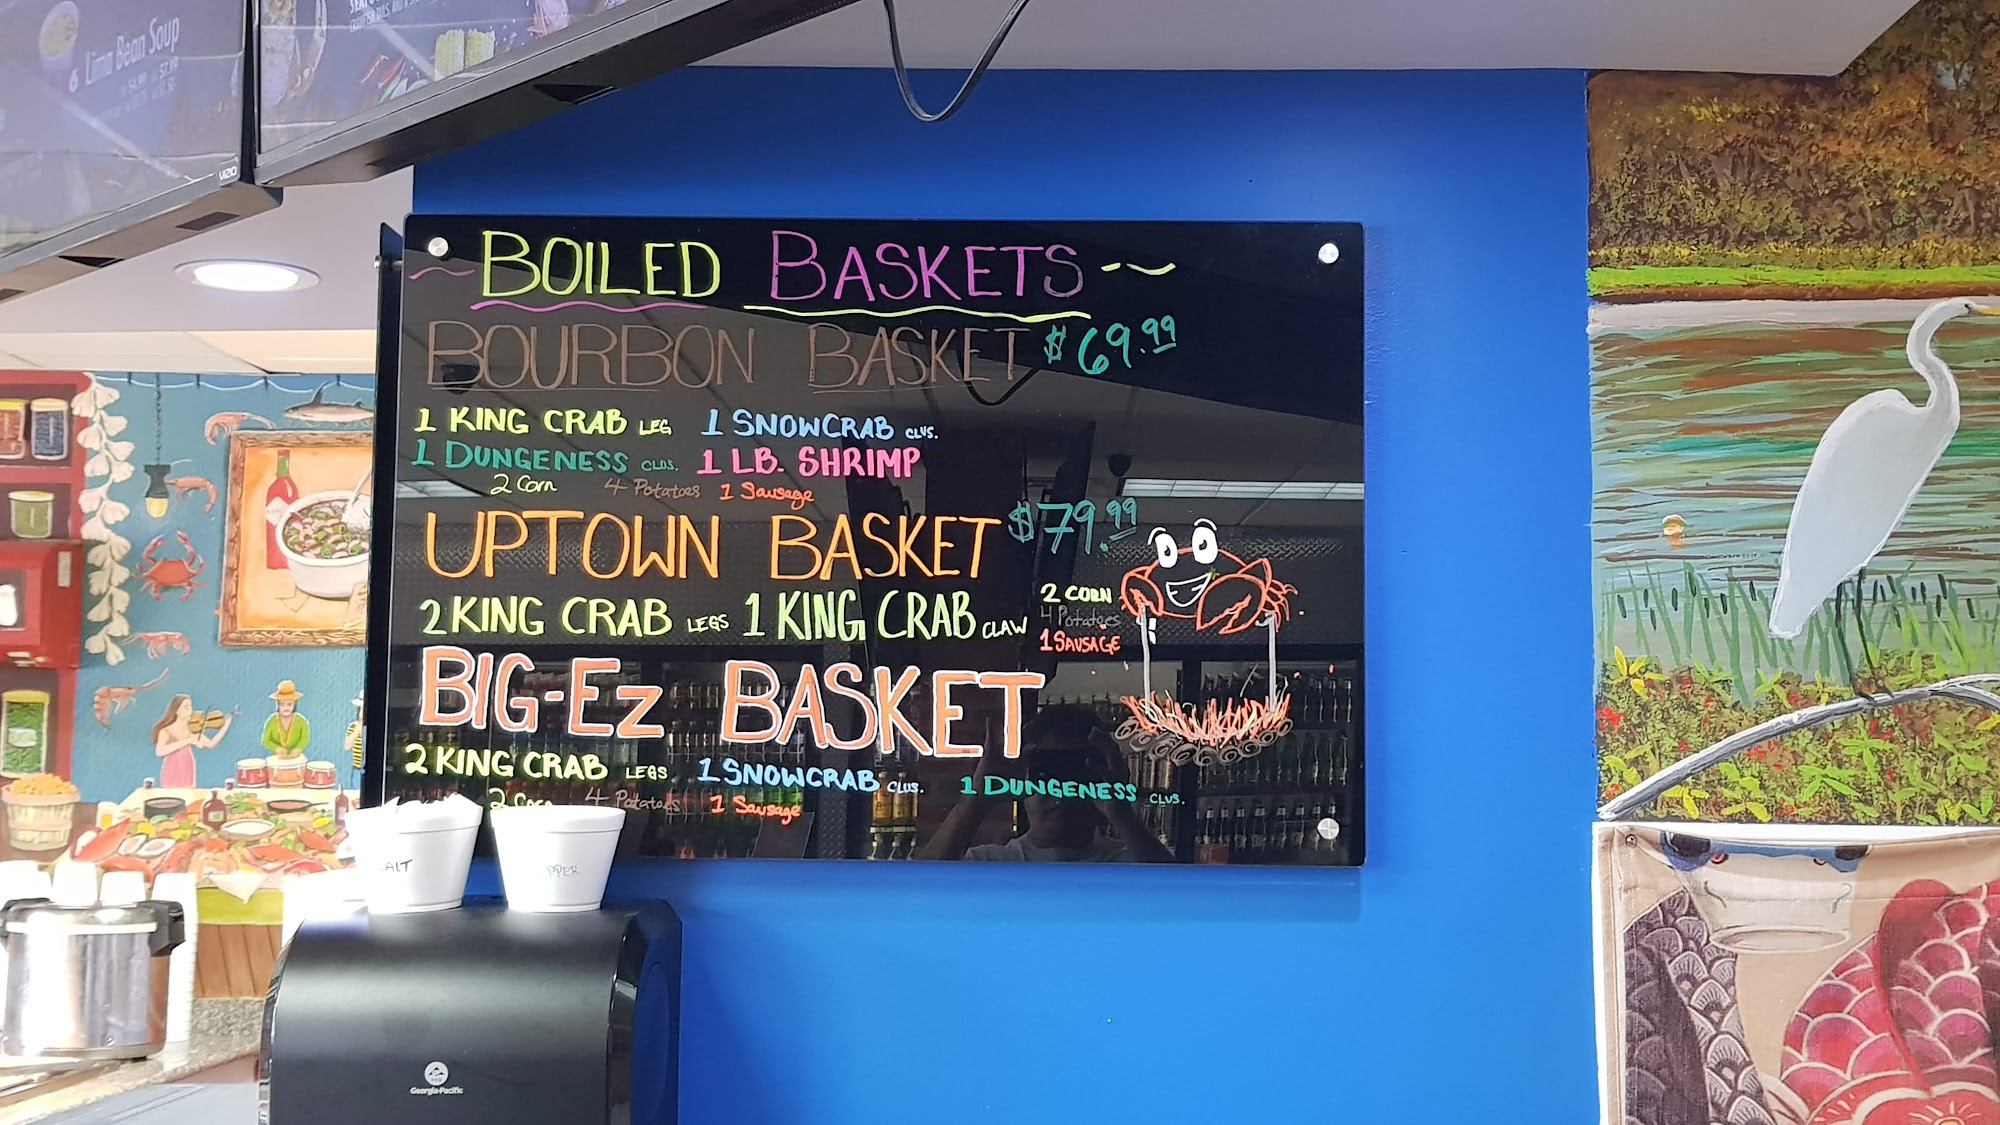 Lima Bean Soup
VIZIO
~ BOILED BASKETS ~
BOURBON BASKET $69.99
1 KING CRAB LEG 1 SNOWCRAB CLUS.
1 DUNGENESS CLDS. 1 LB. SHRIMP
2 Corn 4 Potatoes 1 Sausage
UPTOWN BASKET $79.99
2 KING CRAB LEGS 1 KING CRAB CLAW
2 CORN
4 Potatoes
1 SAUSAGE
BIG-EZ BASKET
2 KING CRAB LEGS 1 SNOWCRAB CLUS. 1 DUNGENESS CLUS.
2 Corn 4 Potatoes 1 Sausage
ALT
PPER
Georgia-Pacific